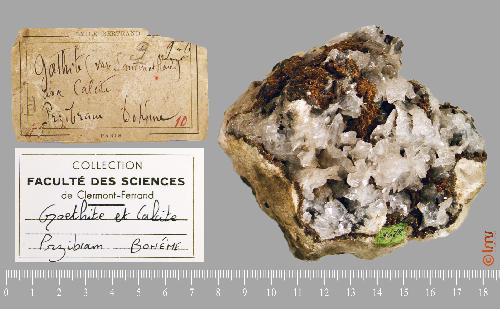 EMILE BERTRAND
Goethite (var.
sur Calcite
Przibram Bohême
10
PARIS
COLLECTION
FACULTÉ DES SCIENCES
de Clermont-Ferrand
Goethite et Calcite
Przibram BOHÊME
© lmv
0 1 2 3 4 5 6 7 8 9 10 11 12 13 14 15 16 17 18